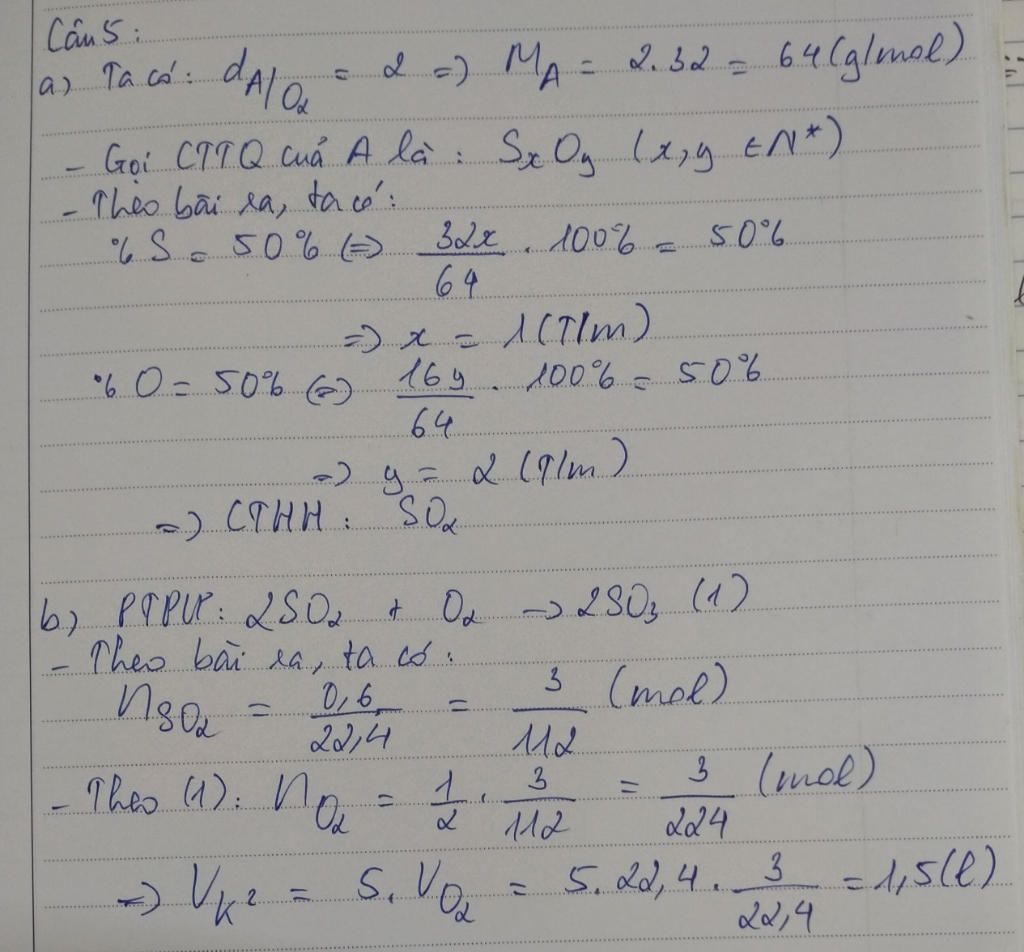 Câu 5:
a) Ta có: d_{A/O₂} = 2 => M_A = 2.32 = 64 (g/mol)
- Gọi CTTQ của A là: SₓO_y (x, y ∈ N*)
- Theo bài ra, ta có:
% S = 50% <=> \frac{32x}{64} . 100% = 50%
=> x = 1 (T/m)
% O = 50% <=> \frac{16y}{64} . 100% = 50%
=> y = 2 (T/m)
=> CTHH: SO₂
b) PTPƯ: 2SO₂ + O₂ -> 2SO₃ (1)
- Theo bài ra, ta có:
n_{SO₂} = \frac{0,6}{22,4} = \frac{3}{112} (mol)
- Theo (1): n_{O₂} = \frac{1}{2} . \frac{3}{112} = \frac{3}{224} (mol)
=> V_{k²} = 5. V_{O₂} = 5. 22,4 . \frac{3}{22,4} = 1,5 (l)